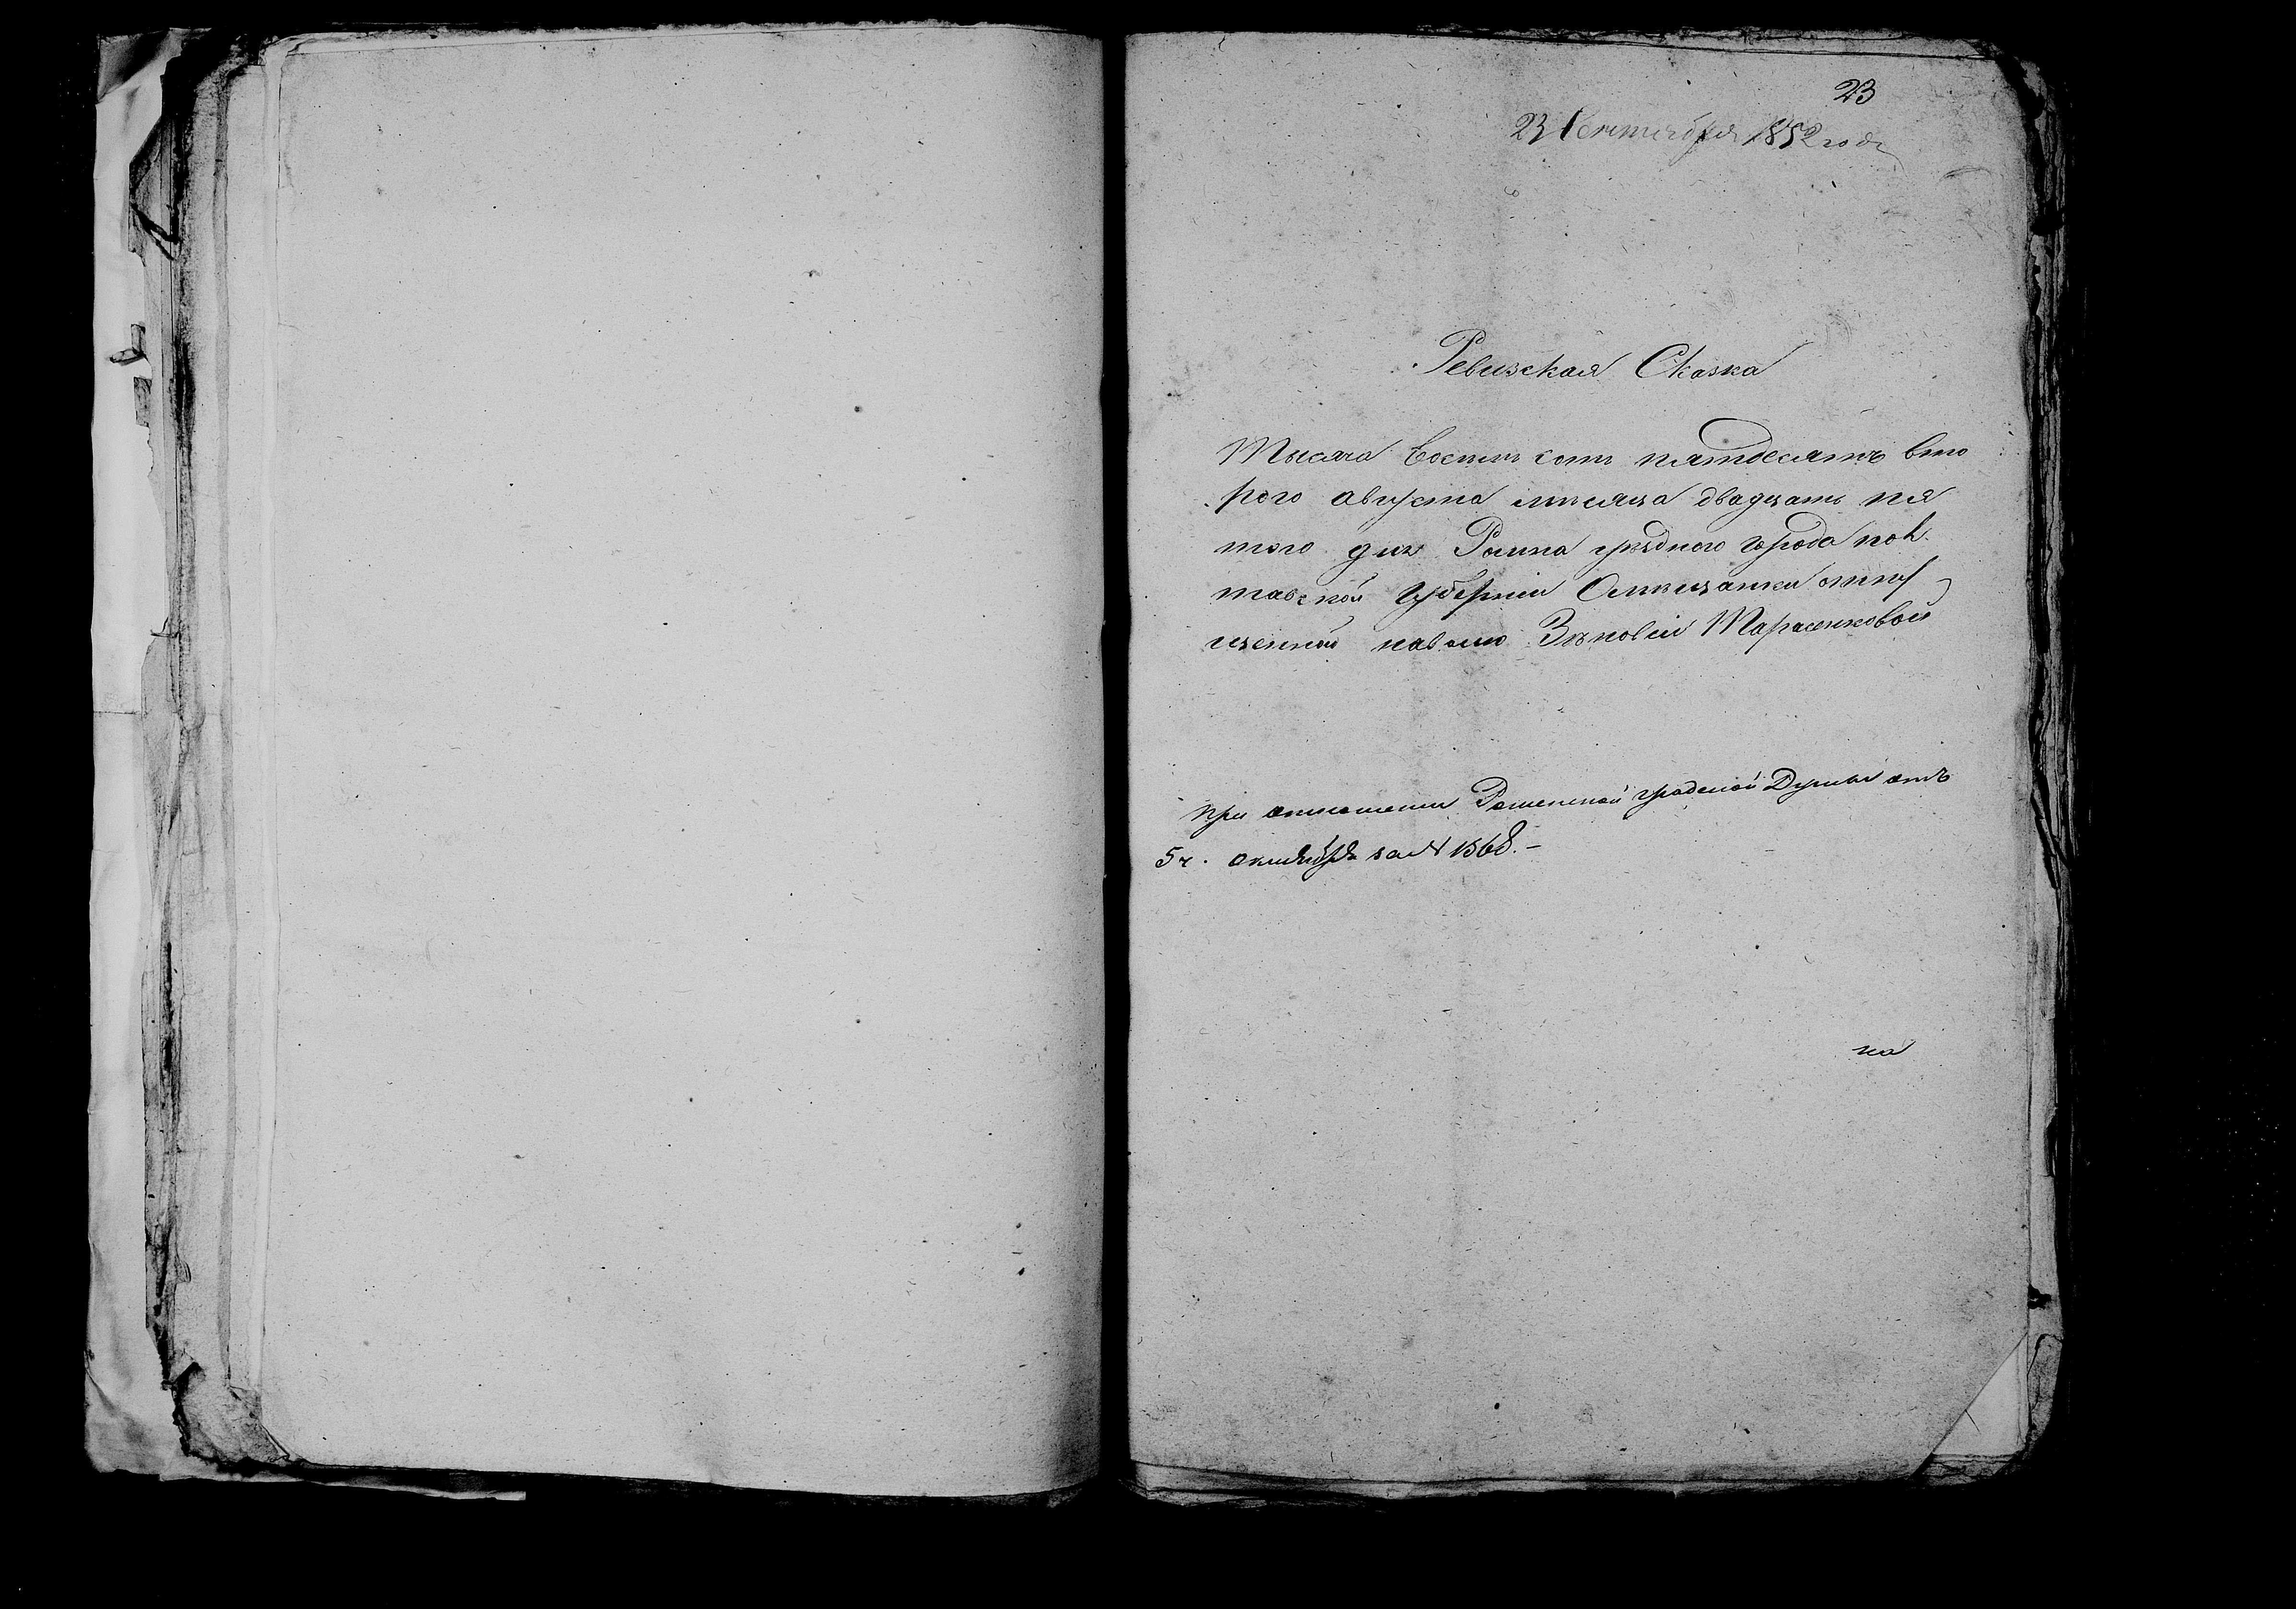 23
23 Сентября 1852 года
Ревизская Сказка
Тысяча Восемь сотъ пятдесятъ вто
рого августа месяца двадцать пя
того дня Ромна уезднаго города пол
тавской губерніи О мещанки отпу
щенной наволю Зѣновіи Тарасенковой
при отношеніи Роменской градской Думы отъ
5 ч. октября за № 1568.–
на